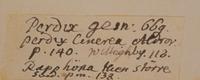 Perdix gesn. 669
perdix Cinerea Aldrov.
p. 140. Willughby 118.
Rapphöna then storre